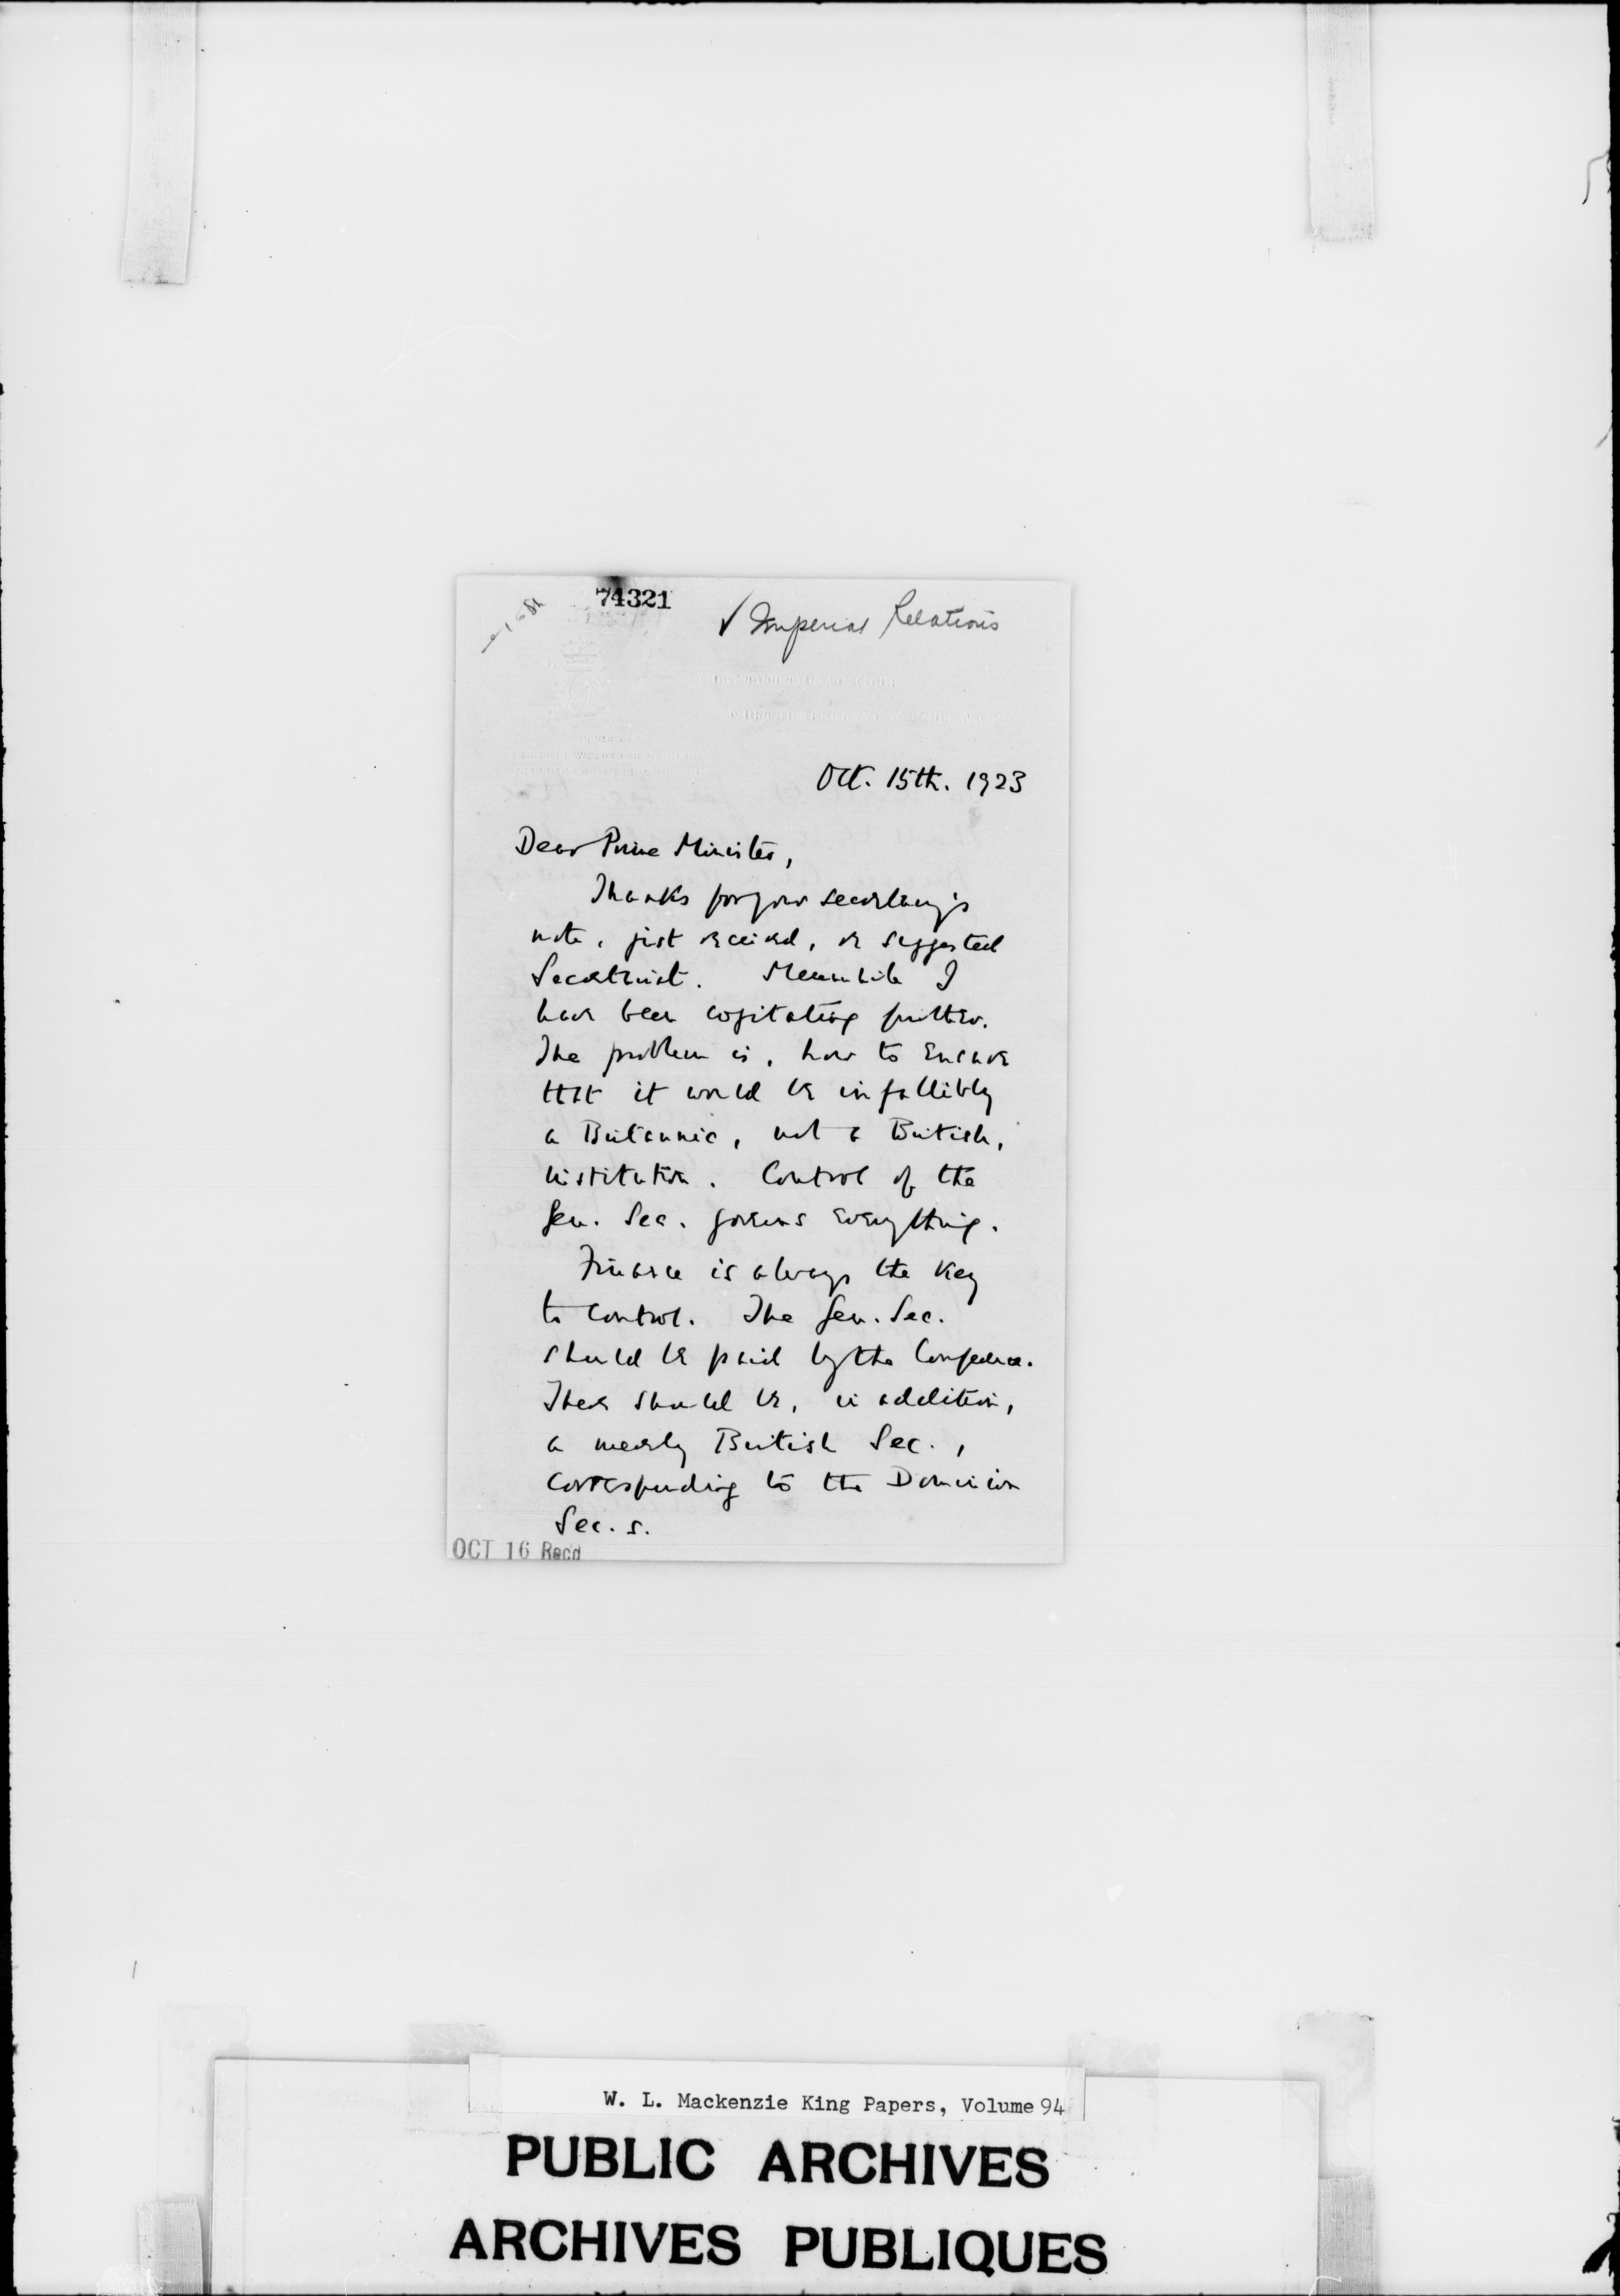 74321
✓ Imperial Relations
Oct. 15th. 1923
Dear Prime Minister,
Thanks for your secretary's
note, just received, re suggested
Secretariat. Meanwhile I
have been cogitating further.
The problem is, how to ensure
that it would be infallibly
a Britannic, not a British,
institution. Control of the
Gen. Sec. governs everything.
Finance is always the key
to control. The Gen. Sec.
should be paid by the Conference.
There should be, in addition,
a merely British Sec.,
corresponding to the Dominion
Sec. s.
OCT 16 Recd
W. L. Mackenzie King Papers, Volume 94
PUBLIC ARCHIVES
ARCHIVES PUBLIQUES